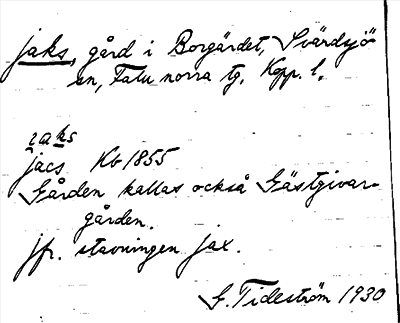 jaks, gård i Borgärdet, Svärdsjö
en, Falu norra tg. Kopp. l.
jacs Kb 1855
Gården kallas också Gästgivar-
gården.
jfr. stavningen jax.
G. Tideström 1930